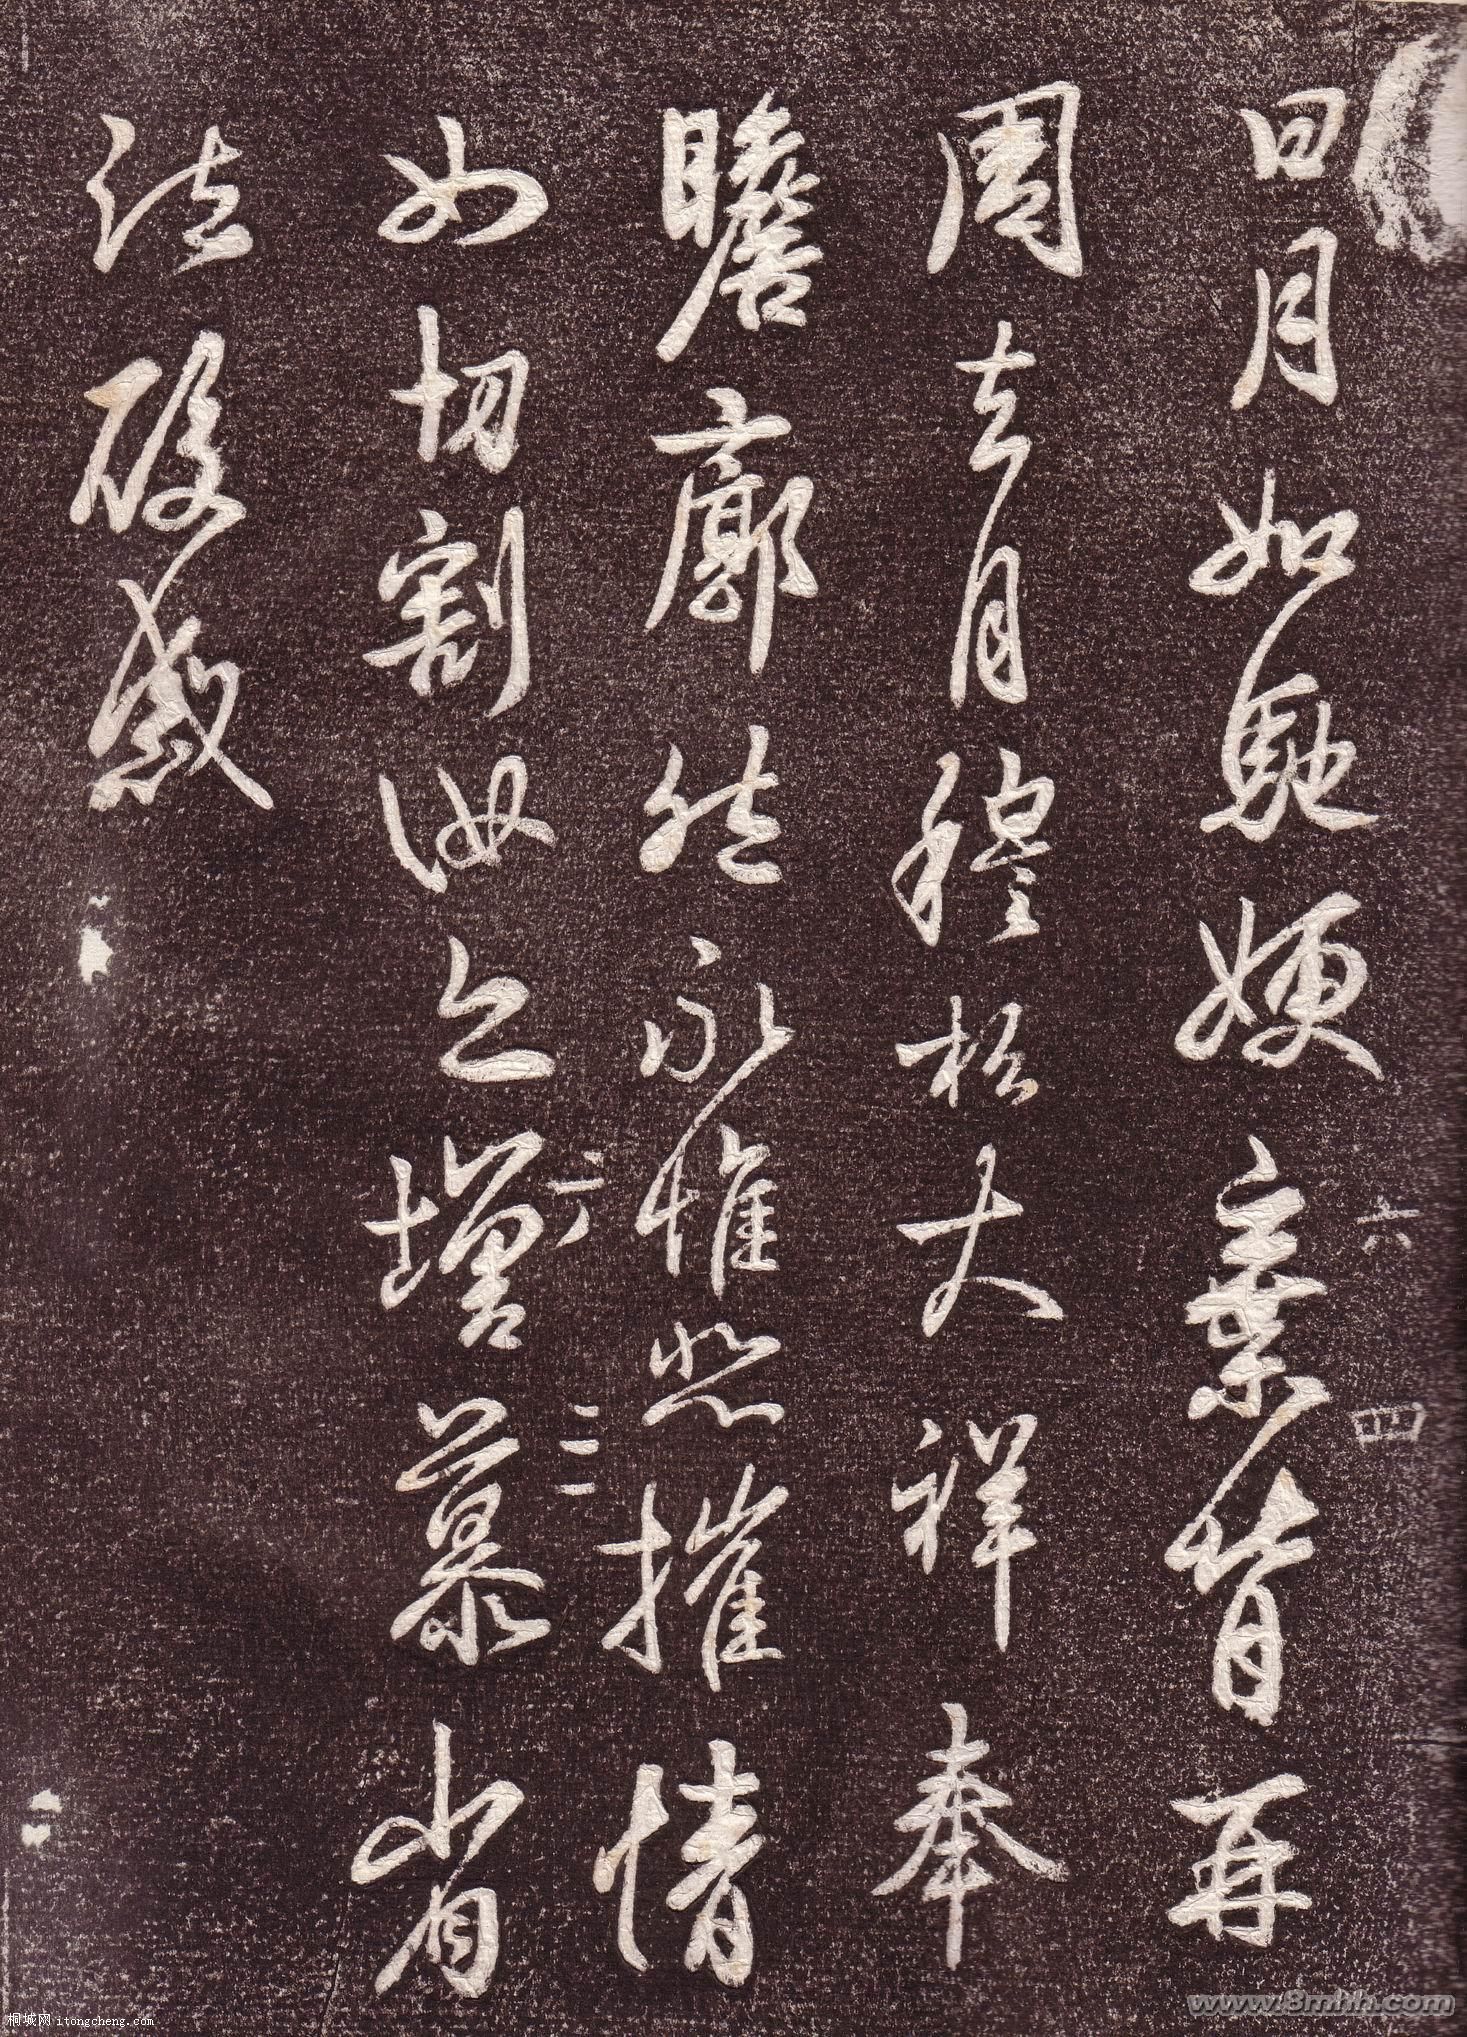 日月如馳嫂棄背再
周去月穆松大祥奉
瞻廓然永惟悲摧情
如切割汝亦增慕省
疏酸感
六四
六三
桐城网 itongcheng.com
www.8mhh.com